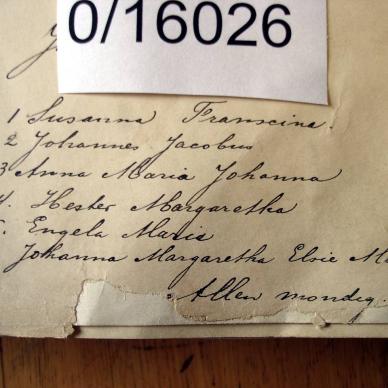 0/16026
1 Susanna Franscina.
2 Johannes Jacobus
3 Anna Maria Johanna
4. Hester Margaretha
Engela Maria
Johanna Margaretha Elsie
Allen mondig.